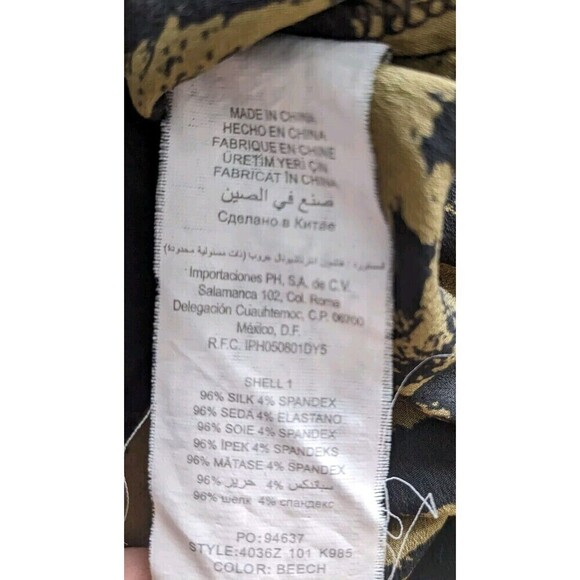 MADE IN CHINA
HECHO EN CHINA
FABRIQUE EN CHINE
ÜRETİM YERİ ÇİN
FABRICAT ÎN CHINA
صنع في الصين
Сделано в Китае
المستورد: فاشون انترناشيونال جروب (ذات مسئولية محدودة)
Importaciones PH, S.A. de C.V.
Salamanca 102, Col. Roma
Delegación Cuauhtemoc, C.P. 06700
México, D.F.
R.F.C. IPH050801DY5
SHELL 1
96% SILK 4% SPANDEX
96% SEDA 4% ELASTANO
96% SOIE 4% SPANDEX
96% İPEK 4% SPANDEKS
96% MĂTASE 4% SPANDEX
96% حرير 4% سباندكس
96% шелк 4% спандекс
PO:94637
STYLE:4036Z 101 K985
COLOR: BEECH